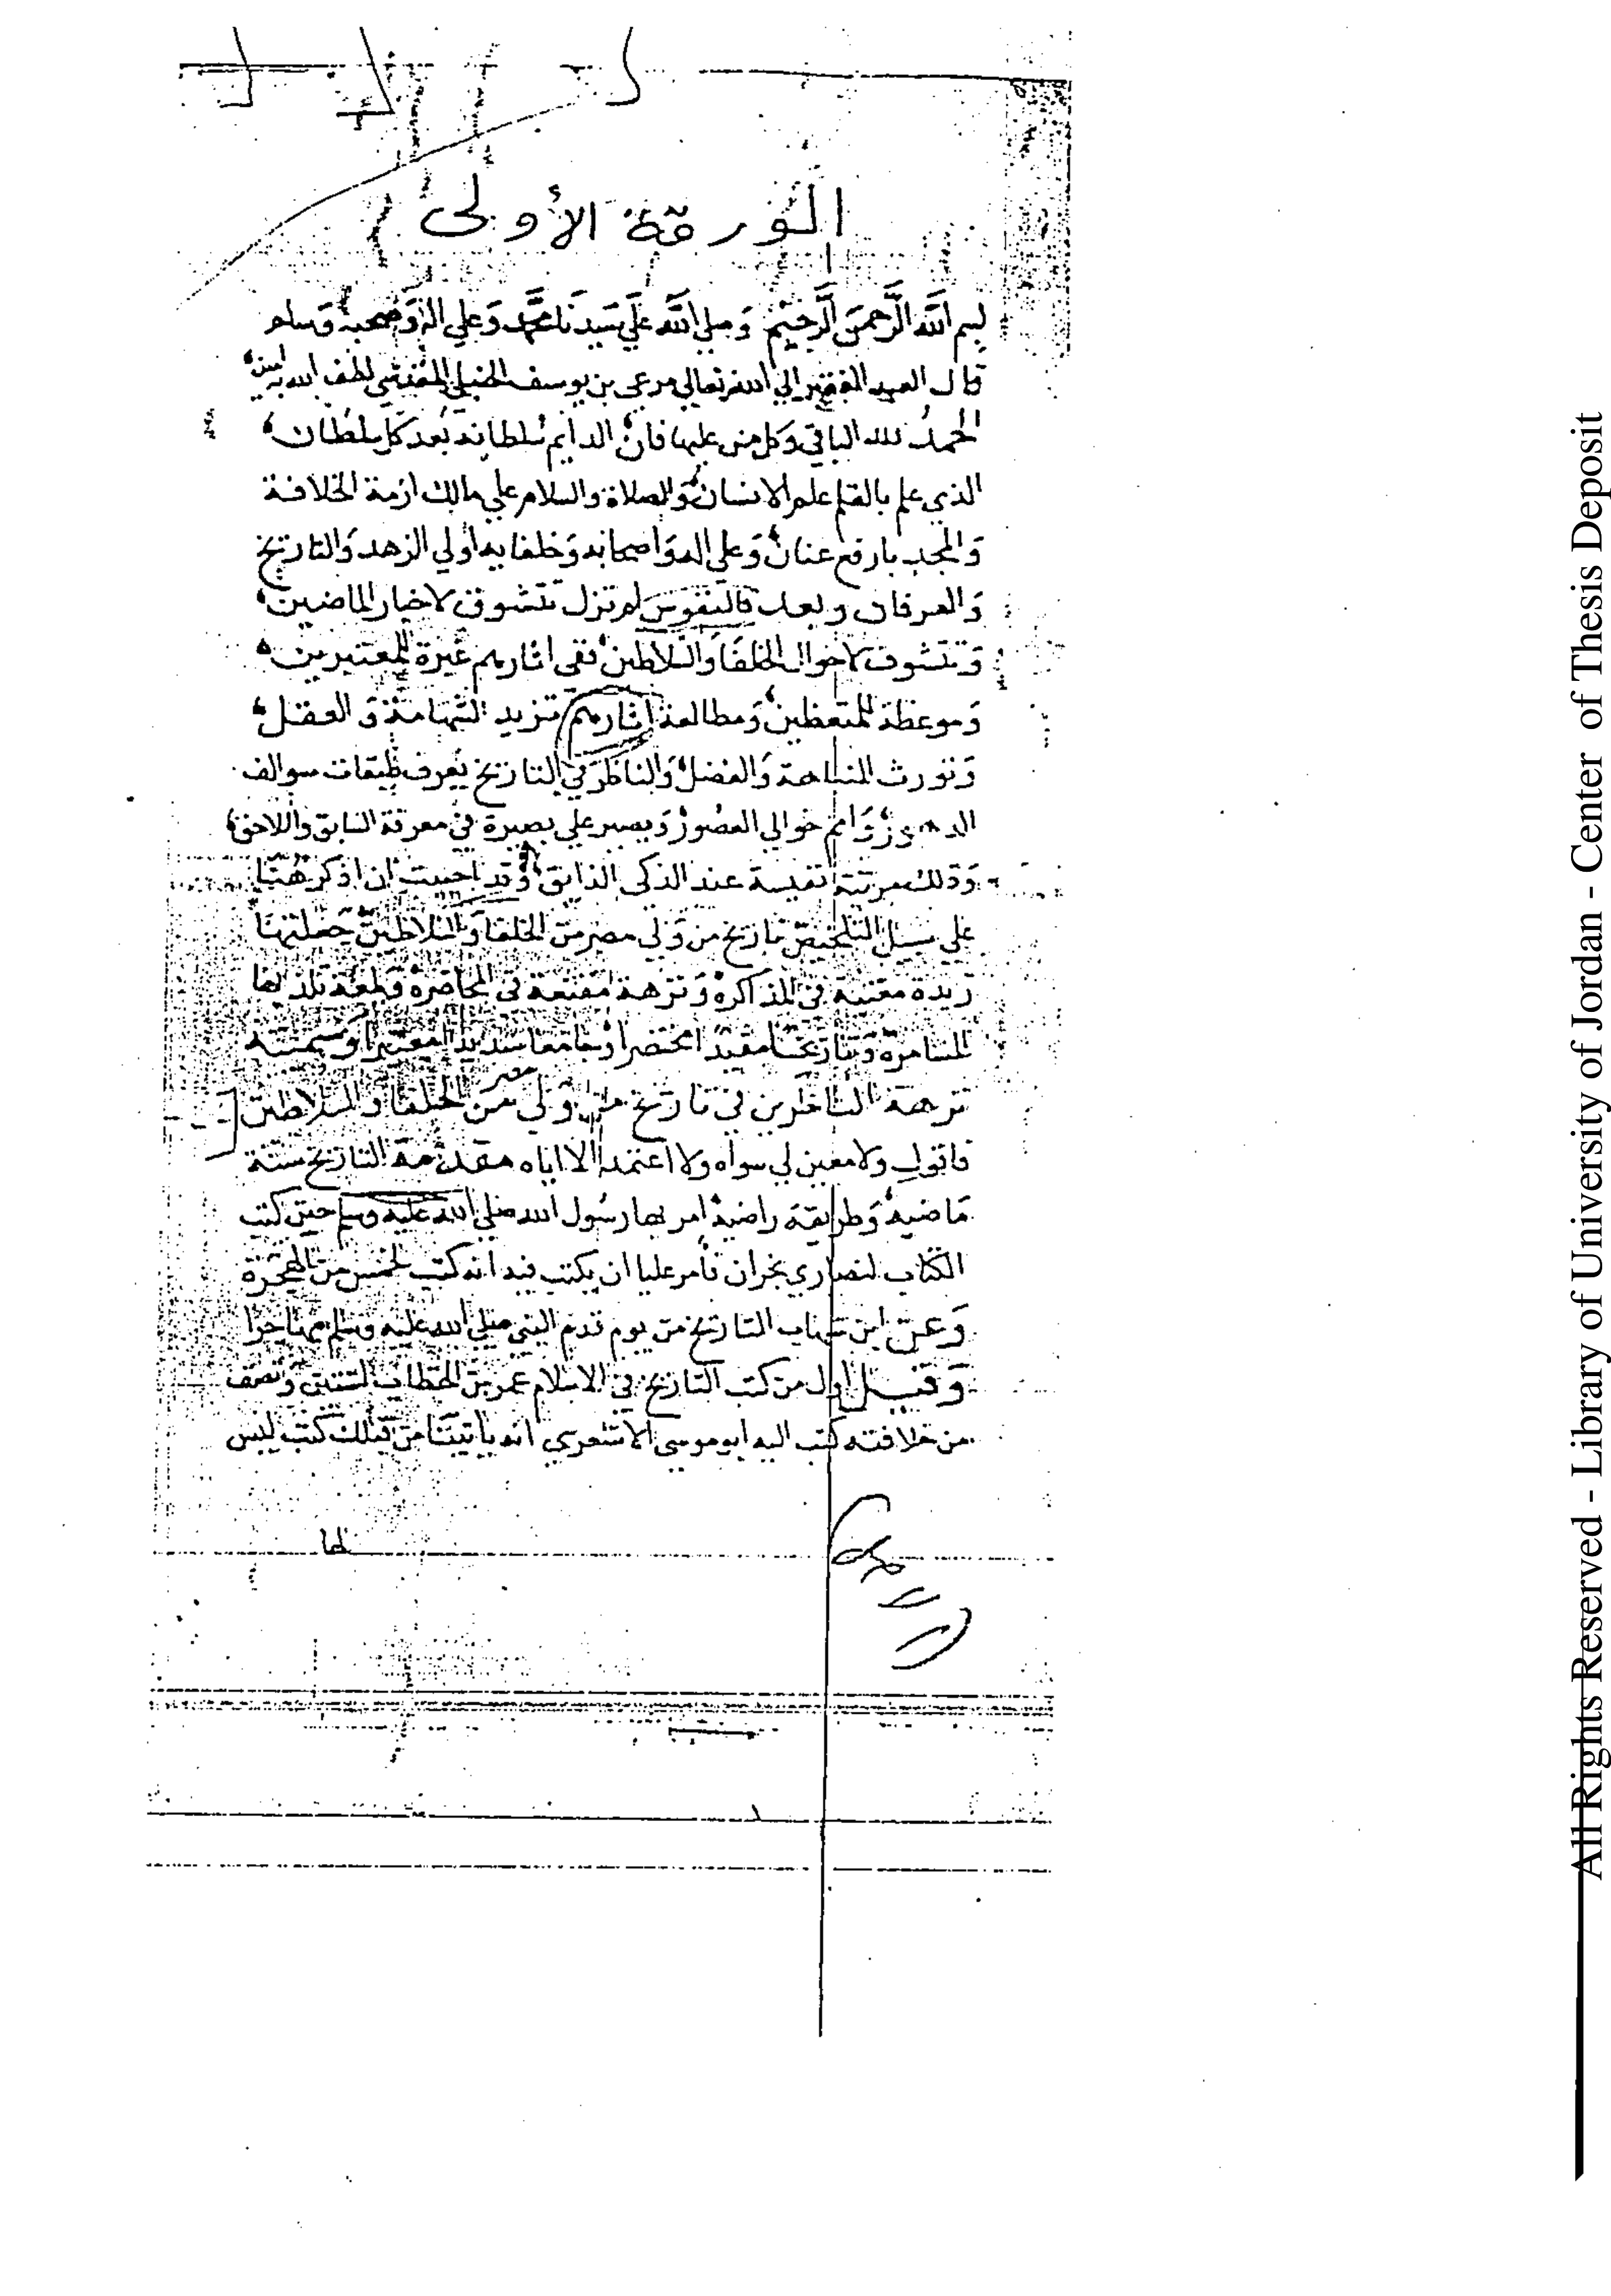 الورقة الأولى
بسم الله الرحمن الرحيم وصلى الله علي سيدنا محمد وعلي اله وصحبه وسلم
قال العبد الفقير الي الله تعالي مرعي بن يوسف الحنبلي المقدسي لطف الله به امين
الحمد لله الباقي وكل من عليها فان الدايم سلطانه بعد كل سلطان
الذي علم بالقلم علم الانسان والصلاة والسلام علي مالك ازمة الخلافة
والمجد بارفع عنان وعلي اله واصحابه وخلفايه اولي الزهد والتاريخ
والعرفان وبعد فالنفوس لم تزل تتشوق لاخبار الماضين
وتتشوف لاحوال الخلفا والسلاطين ففي اثارهم عبرة للمعتبرين
وموعظة للمتعظين ومطالعة اثارهم تزيد الشهامة والعقل
وتورث النباهة والفضل والناظر في التاريخ يعرف طبقات سوالف
الدهور وامم خوالي العصور ويصير علي بصيرة في معرفة السابق واللاحق
وذلك مرتبة نفيسة عند الذكي الذايق وقد احببت ان اذكر هنا
علي سبيل التلخيص تاريخ من ولي مصر من الخلفا والسلاطين جعلتها
زبدة مغنية في المذاكرة ونزهة مقنعة في المحاضرة ولمعة تلذ بها
المسامرة وتاريخا مفيدا مختصرا وجامعا سديدا معتبرا وسميته
نزهة الناظرين في تاريخ من ولي مصر من الخلفا والسلاطين
فاقول ولا معين لي سواه ولا اعتمد الا اياه مقدمة التاريخ سنة
ماضية وطريقة راضية امر بها رسول الله صلي الله عليه وسلم حين كتب
الكتاب لنصاري نجران فأمر عليا ان يكتب فيه انه كتب لخمس من الهجرة
وعن ابن شهاب التاريخ من يوم قدم النبي صلي الله عليه وسلم مهاجرا
وقيل اول من كتب التاريخ في الاسلام عمر بن الخطاب لسنتين ونصف
من خلافته كتب اليه ابو موسي الاشعري انه ياتينا من قبلك كتب ليس
لها
All Rights Reserved - Library of University of Jordan - Center of Thesis Deposit